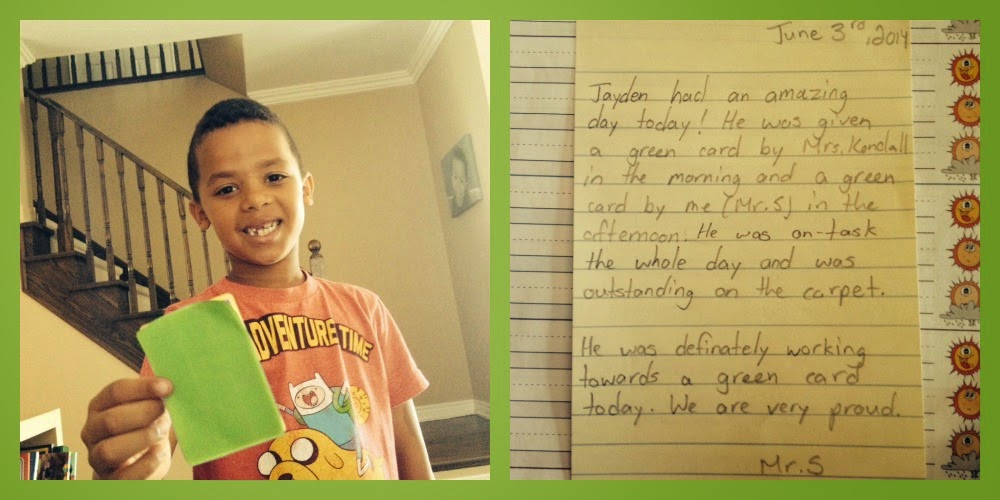 ADVENTURE TIME
June 3rd, 2014
Jayden had an amazing
day today! He was given
a green card by Mrs. Kendall
in the morning and a green
card by me (Mr. S) in the
afternoon. He was on-task
the whole day and was
outstanding on the carpet.
He was definately working
towards a green card
today. We are very proud.
Mr. S